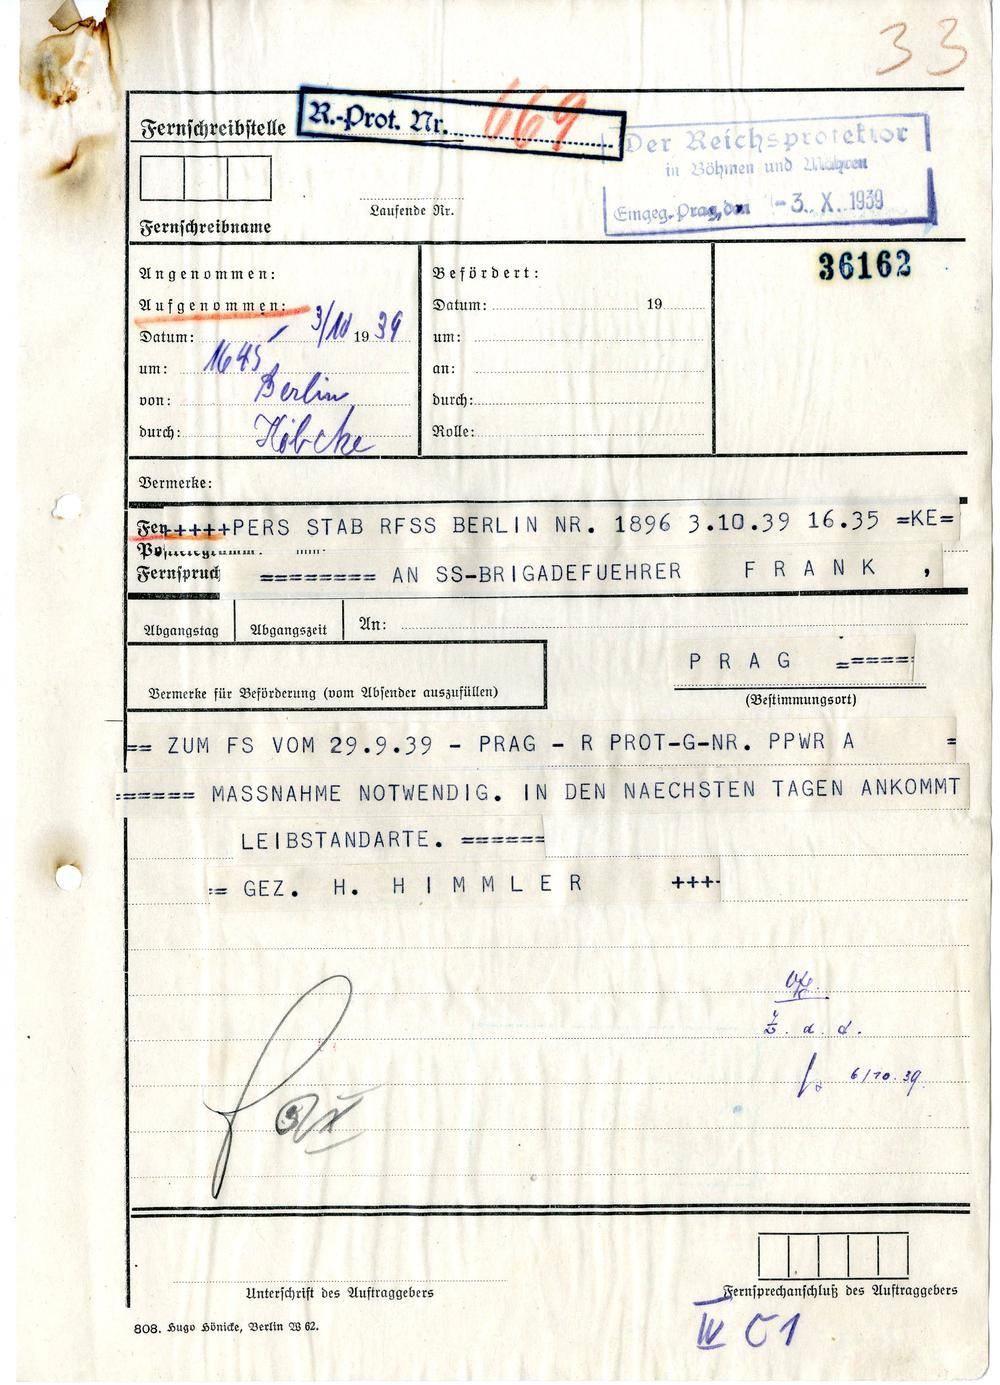 33
Fernschreibstelle
R.-Prot. Nr. 669
Der Reichsprotektor
in Böhmen und Mähren
Eingeg. Prag, den -3. X. 1939
Laufende Nr.
Fernschreibname
36162
Angenommen:
Aufgenommen:
Datum: 3/10 1939
um: 1645
von: Berlin
durch: Köbcke
Befördert:
Datum: 19
um:
an:
durch:
Rolle:
Vermerke:
+++++PERS STAB RFSS BERLIN NR. 1896 3.10.39 16.35 =KE=
Fernspruch ======== AN SS-BRIGADEFUEHRER F R A N K ,
Abgangstag
Abgangszeit
An:
P R A G =-====
Vermerke für Beförderung (vom Absender auszufüllen)
(Bestimmungsort)
== ZUM FS VOM 29.9.39 - PRAG - R PROT-G-NR. PPWR A =
====== MASSNAHME NOTWENDIG. IN DEN NAECHSTEN TAGEN ANKOMMT
LEIBSTANDARTE. ======
:= GEZ. H. H I M M L E R +++-
Z. d. A.
6/10.39
Unterschrift des Auftraggebers
Fernsprechanschluß des Auftraggebers
808. Hugo Hönicke, Berlin W 62.
IV C1